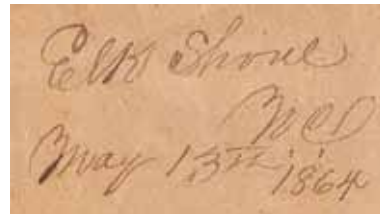 Elk Shoal
N.C.
May 13th 1864